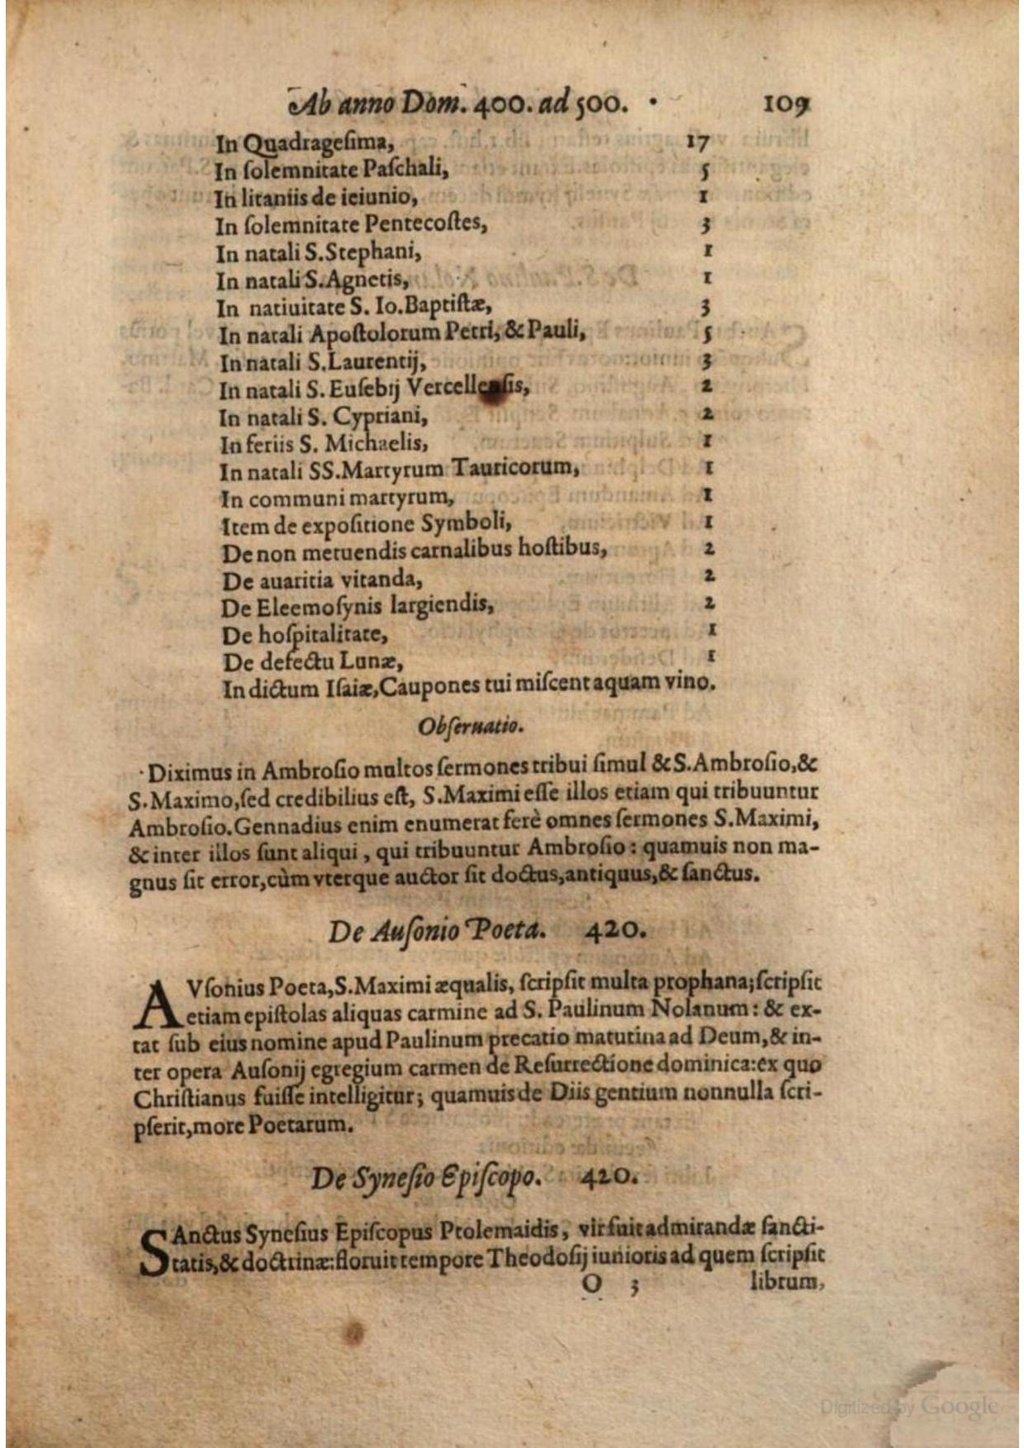 Ab anno Dom. 400. ad 500. 109
In Quadrageſima, 17
In ſolemnitate Paſchali, 5
In litaniis de ieiunio, 1
In ſolemnitate Pentecoſtes, 3
In natali S.Stephani, 1
In natali S.Agnetis, 1
In natiuitate S. Io.Baptiſtæ, 3
In natali Apoſtolorum Petri, & Pauli, 5
In natali S.Laurentij, 3
In natali S. Euſebij Vercellenſis, 2
In natali S. Cypriani, 2
In feriis S. Michaelis, 1
In natali SS.Martyrum Tauricorum, 1
In communi martyrum, 1
Item de expoſitione Symboli, 1
De non metuendis carnalibus hoſtibus, 2
De auaritia vitanda, 2
De Eleemoſynis largiendis, 2
De hoſpitalitate, 1
De defectu Lunæ, 1
In dictum Iſaiæ,Caupones tui miſcent aquam vino.
Obſeruatio.
Diximus in Ambroſio multos ſermones tribui ſimul & S.Ambroſio,&
S.Maximo,ſed credibilius eſt, S.Maximi eſſe illos etiam qui tribuuntur
Ambroſio.Gennadius enim enumerat ferè omnes ſermones S.Maximi,
& inter illos ſunt aliqui, qui tribuuntur Ambroſio: quamuis non ma-
gnus ſit error,cùm vterque auctor ſit doctus,antiquus,& ſanctus.
De Auſonio Poeta. 420.
AVſonius Poeta,S.Maximi æqualis, ſcripſit multa prophana;ſcripſit
etiam epiſtolas aliquas carmine ad S. Paulinum Nolanum: & ex-
tat ſub eius nomine apud Paulinum precatio matutina ad Deum,& in-
ter opera Auſonij egregium carmen de Reſurrectione dominica:ex quo
Chriſtianus fuiſſe intelligitur; quamuis de Diis gentium nonnulla ſcri-
pſerit,more Poetarum.
De Syneſio Epiſcopo. 420.
SAnctus Syneſius Epiſcopus Ptolemaidis, vir fuit admirandæ ſancti-
tatis,& doctrinæ:floruit tempore Theodoſij iunioris ad quem ſcripſit
O 3 librum,
Digitized by Google